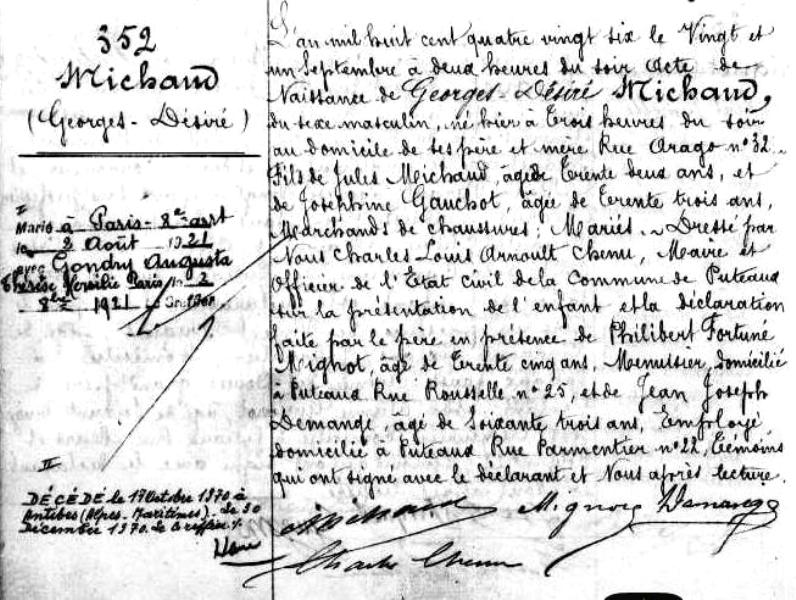 352
Michaud
(Georges-Désiré)
I
Marié à Paris-8e arrt
le 2 Août 1921
avec Gondry Augusta
Thérèse Paris, le 2
8bre 1921
II
DÉCÉDÉ le 17 Octobre 1970 à
Antibes (Alpes-Maritimes). Le 30
Décembre 1970. Le Greffier.
L'an mil huit cent quatre vingt six le Vingt et
un Septembre à deux heures du soir Acte de
Naissance de Georges-Désiré Michaud,
du sexe masculin, né hier à trois heures du soir
au domicile de ses père et mère Rue Arago n° 32.
Fils de Jules Michaud, âgé de trente deux ans, et
de Joséphine Gauchot, âgée de trente trois ans,
Marchands de chaussures; Mariés. Dressé par
Nous Charles Louis Arnoult Chenu, Maire et
Officier de l'Etat civil de la Commune de Puteaux
sur la présentation de l'enfant et la déclaration
faite par le père en présence de Philibert Fortuné
Mignot, âgé de trente cinq ans, Menuisier, domicilié
à Puteaux Rue Rousselle n° 25, et de Jean Joseph
Demange, âgé de Soixante trois ans, Employé,
domicilié à Puteaux Rue Parmentier n° 22, témoins
qui ont signé avec le déclarant et Nous après lecture.
Michaud Mignot Demange
Charles Chenu